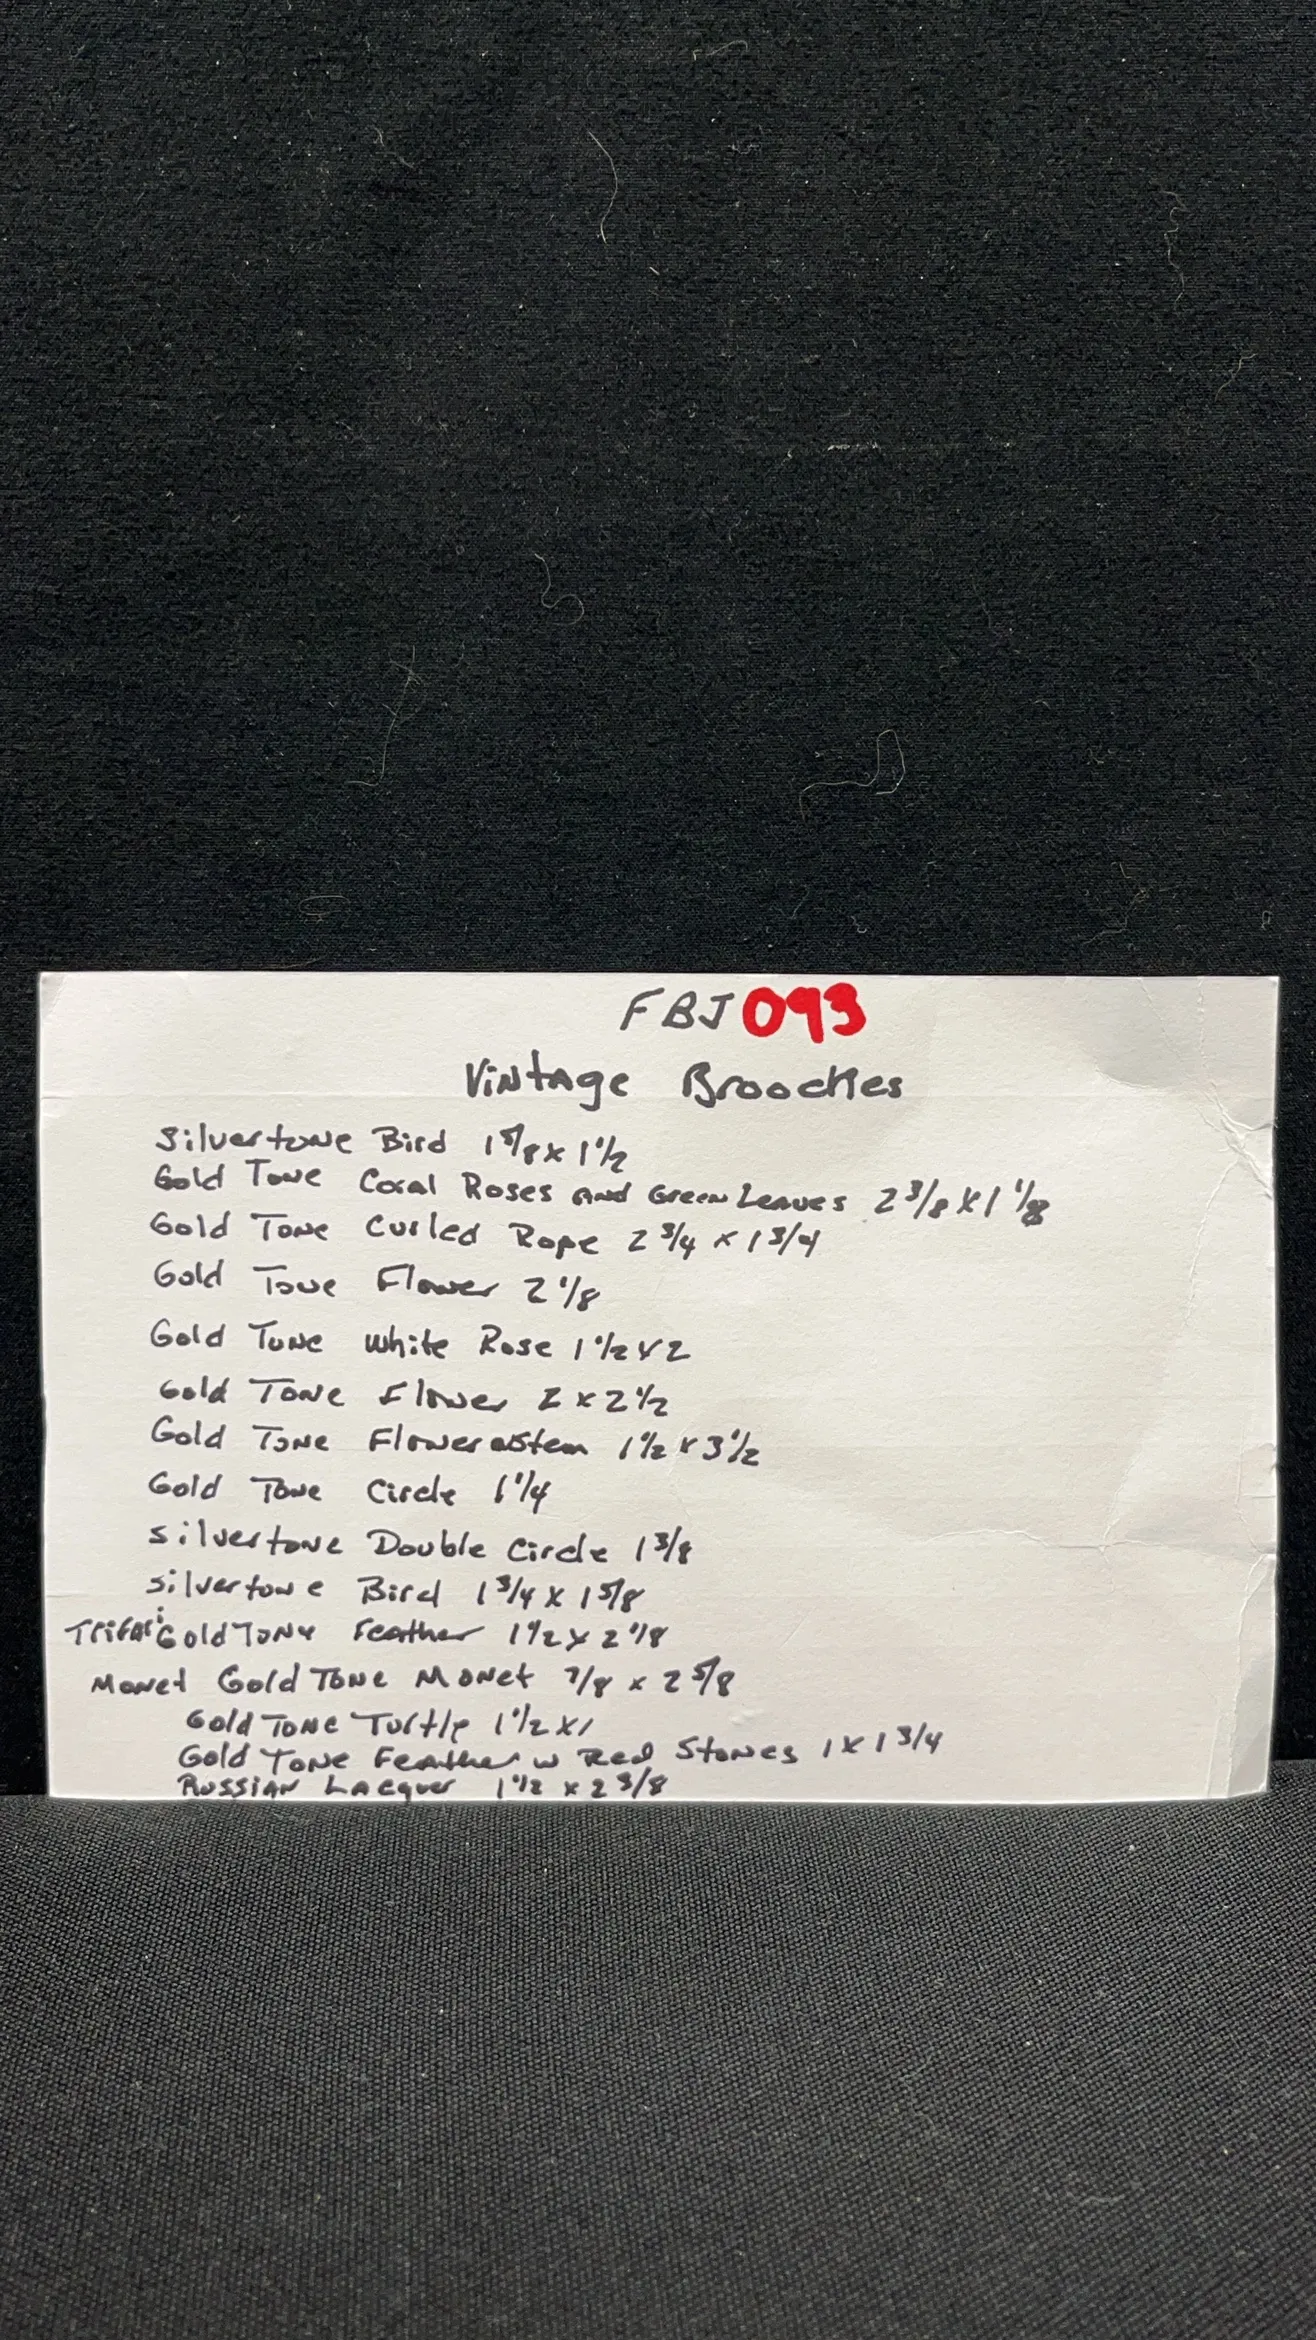 FBJ 093
Vintage Brooches
Silvertone Bird 1 5/8 x 1 1/2
Gold Tone Coral Roses and Green Leaves 2 3/8 x 1 1/8
Gold Tone Curled Rope 2 3/4 x 1 3/4
Gold Tone Flower 2 1/8
Gold Tone White Rose 1 1/2 x 2
Gold Tone Flower 2 x 2 1/2
Gold Tone Flower 1 1/2 x 3 1/2
Gold Tone Circle 1 1/4
Silvertone Double Circle 1 3/8
Silvertone Bird 1 3/4 x 1 5/8
Trifari Gold Tone Feather 1 1/2 x 2 1/8
Monet Gold Tone Monet 7/8 x 2 5/8
Gold Tone Turtle 1 1/2 x 1
Gold Tone Feather w Red Stones 1 x 1 3/4
Russian Lacquer 1 1/2 x 2 3/8